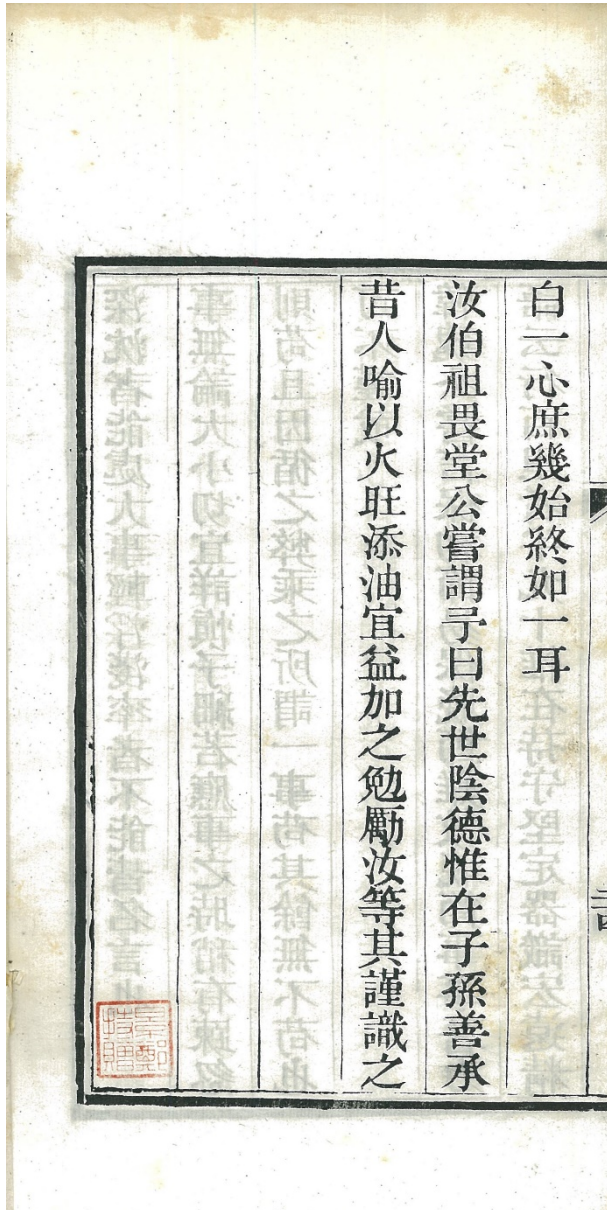 白一心庶幾始終如一耳
汝伯祖畏堂公嘗謂予曰先世陰德惟在子孫善承
昔人喻以火旺添油宜益加之勉勵汝等其謹識之
景鄭
持贈